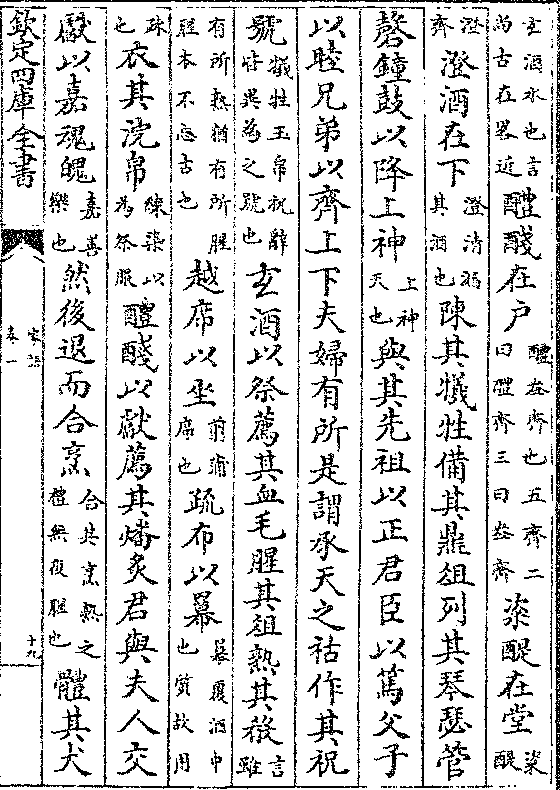 玄酒水也言尚古在畧近醴醆在户醴盎齊也五齊二曰醴齊三曰盎齊粢醍在堂粢醍
澄齊澄酒在下澄清漏其酒也陳其犧牲備其鼎俎列其琴瑟管
磬鐘鼓以降上神上神天也與其先祖以正君臣以篤父子
以睦兄弟以齊上下夫婦有所是謂承天之祜作其祝
號犧牲玉帛祝辭皆異為之號也玄酒以祭薦其血毛腥其俎熟其殽言雖
有所熟猶有所腥腥本不忘古也越席以坐翦蒲席也疏布以羃羃覆酒中也質故用
疎也衣其浣帛練染以為祭服醴醆以獻薦其燔炙君與夫人交
獻以嘉魂魄嘉善樂也然後退而合烹合其烹熟之禮無復腥也體其犬
欽定四庫全書
家語
卷一
十九